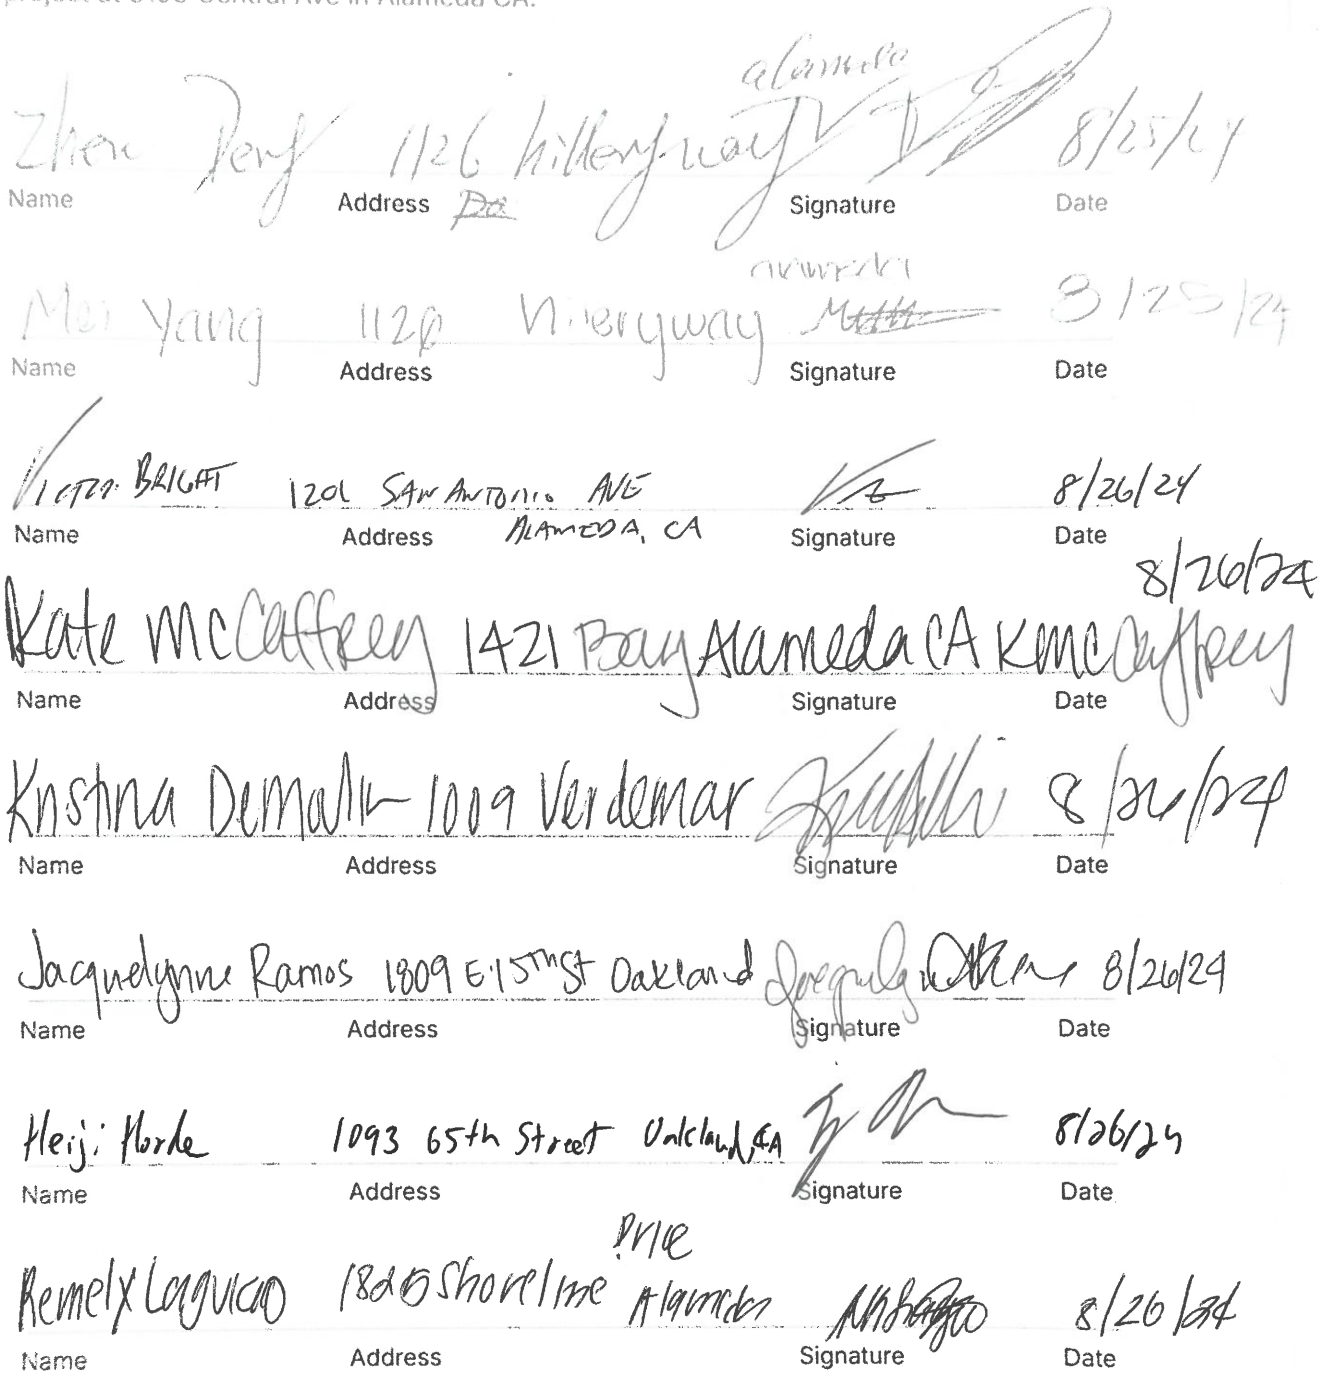 project at 5100 Central Ave in Alameda CA.
alameda
Zhen Deng 1126 hillery way 8/25/24
Name Address Signature Date
Mei Yang 112 way 8/25/24
Name Address Signature Date
Victor BRIGHT 1201 SAN ANTONIO AVE 8/26/24
Name Address ALAMEDA, CA Signature Date
8/26/24
Kate McCaffrey 1421 Bay Alameda CA KMcCaffrey
Name Address Signature Date
Kristina 1009 Verdemar 8/26/24
Name Address Signature Date
Jacquelynne Ramos 1809 E 15th St Oakland 8/26/24
Name Address Signature Date
Heiji Horde 1093 65th Street Oakland, CA 8/26/24
Name Address Signature Date
Drive
Shoreline Alameda 8/26/24
Name Address Signature Date